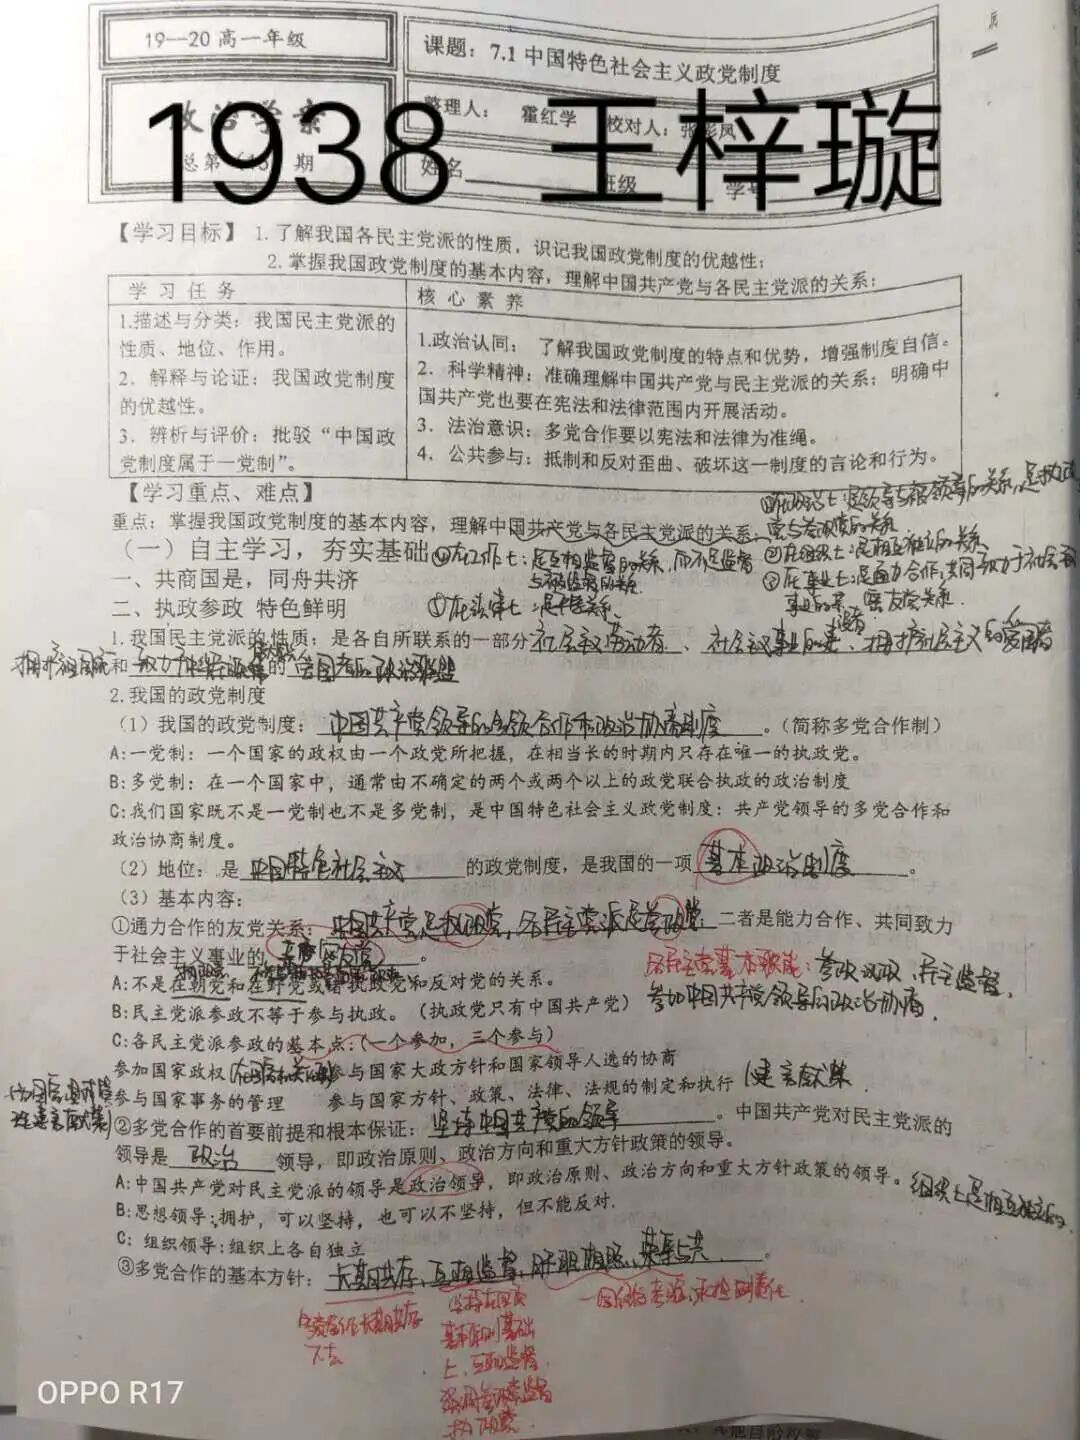 19—20高一年级
课题：7.1 中国特色社会主义政党制度
政治学案
整理人： 霍红学 校对人：张彩凤
总第 期
姓名 班级 学号
1938 王梓璇
【学习目标】 1.了解我国各民主党派的性质，识记我国政党制度的优越性；
2.掌握我国政党制度的基本内容，理解中国共产党与各民主党派的关系；
学 习 任 务
核 心 素 养
1.描述与分类：我国民主党派的
性质、地位、作用。
2．解释与论证：我国政党制度
的优越性。
3．辨析与评价：批驳“中国政
党制度属于一党制”。
1.政治认同： 了解我国政党制度的特点和优势，增强制度自信。
2．科学精神：准确理解中国共产党与民主党派的关系；明确中
国共产党也要在宪法和法律范围内开展活动。
3．法治意识：多党合作要以宪法和法律为准绳。
4．公共参与：抵制和反对歪曲、破坏这一制度的言论和行为。
【学习重点、难点】
①在政治上：是领导与被领导的关系，是执政
重点：掌握我国政党制度的基本内容，理解中国共产党与各民主党派的关系；
党与参政党的关系
（一）自主学习，夯实基础
④在工作上：是互相监督的关系，而不是监督
与被监督的关系
②在组织上：是相互独立的关系
一、共商国是，同舟共济
③在事业上：是通力合作，共同致力于社会主义
事业的 亲密友党关系．
二、执政参政 特色鲜明
⑤在法律上：是平等关系
1.我国民主党派的性质：是各自所联系的一部分社会主义劳动者、社会主义事业的建设者、拥护社会主义的爱国者
拥护祖国统一和致力于中华民族 的爱国者的政治联盟
2.我国的政党制度
（1）我国的政党制度：中国共产党领导的多党合作和政治协商制度。（简称多党合作制）
A:一党制：一个国家的政权由一个政党所把握，在相当长的时期内只存在唯一的执政党。
B:多党制：在一个国家中，通常由不确定的两个或两个以上的政党联合执政的政治制度
C:我们国家既不是一党制也不是多党制，是中国特色社会主义政党制度：共产党领导的多党合作和
政治协商制度。
（2）地位：是 中国特色社会主义 的政党制度，是我国的一项 基本政治制度。
（3）基本内容：
①通力合作的友党关系：中国共产党是执政党，各民主党派是参政党 二者是能力合作、共同致力
于社会主义事业的 亲密友党 。
各民主党基本职能：参政议政、民主监督，
参加中国共产党领导的政治协商．
A:不是在朝党和在野党或者执政党和反对党的关系。
B:民主党派参政不等于参与执政。（执政党只有中国共产党）
C:各民主党派参政的基本点：（一个参加，三个参与）
参加国家政权 参与国家大政方针和国家领导人选的协商
参与国家事务的管理 参与国家方针、政策、法律、法规的制定和执行
②多党合作的首要前提和根本保证：坚持中国共产党的领导。中国共产党对民主党派的
领导是 政治 领导，即政治原则、政治方向和重大方针政策的领导。
A:中国共产党对民主党派的领导是政治领导，即政治原则、政治方向和重大方针政策的领导。
组织上是相互独立的．
B:思想领导：拥护，可以坚持，也可以不坚持，但不能反对．
C：组织领导：组织上各自独立
③多党合作的基本方针：长期共存、互相监督、肝胆相照、荣辱与共。
坚持在四项
基本原则基础
上，互相监督．
强调参政党监督
执政党．
OPPO R17